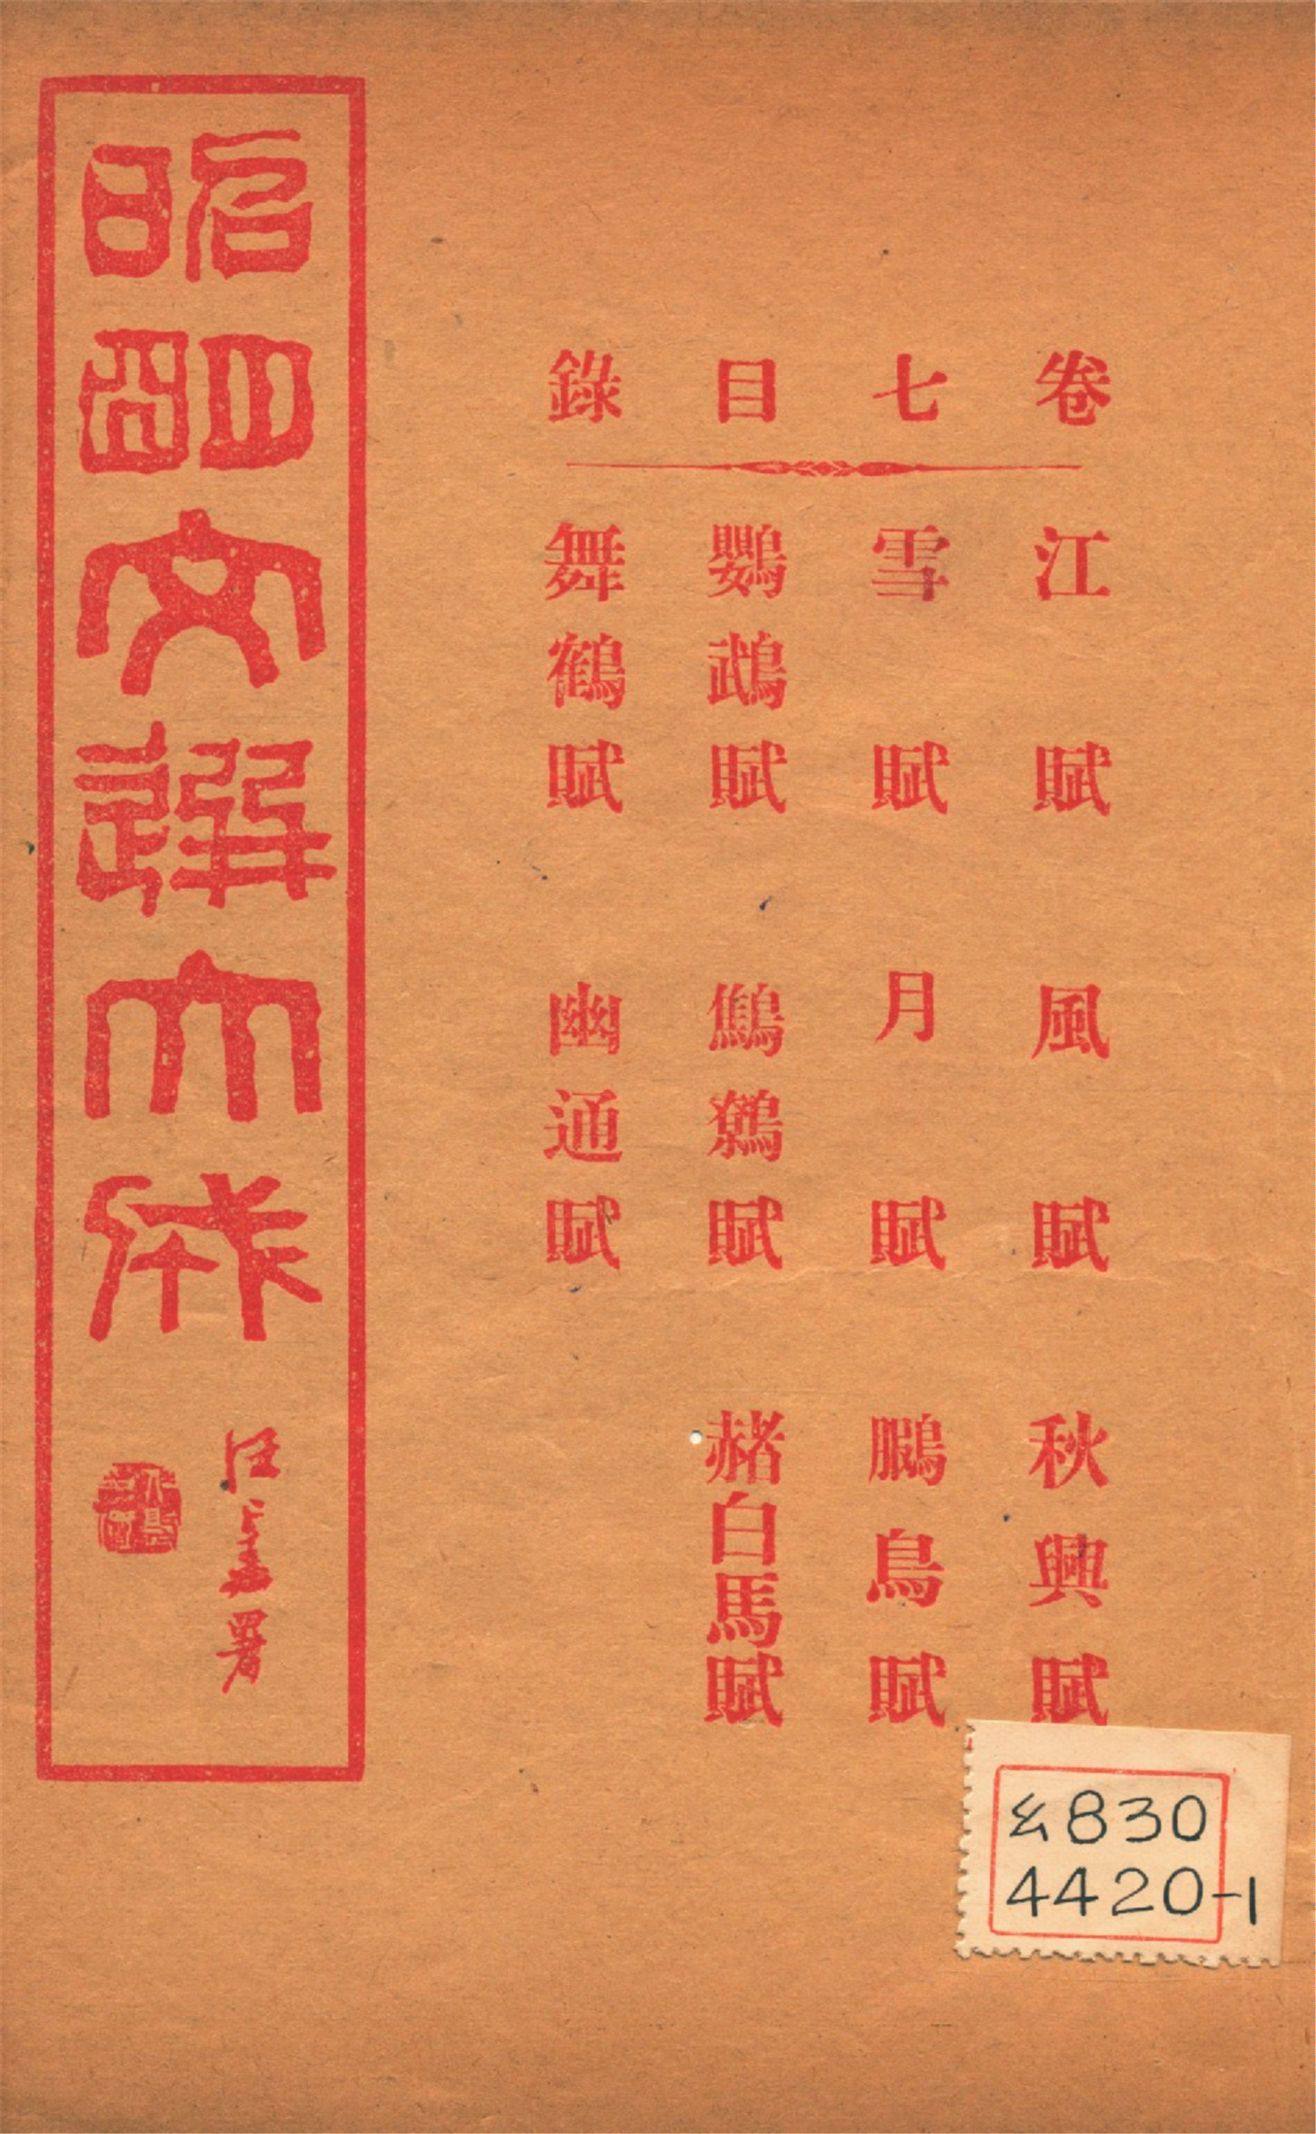 卷七目錄
江賦 風賦 秋興賦
雪賦 月賦 鵩鳥賦
鸚鵡賦 鷦鷯賦 赭白馬賦
舞鶴賦 幽通賦
昭明文選大成
署
830
4420-1